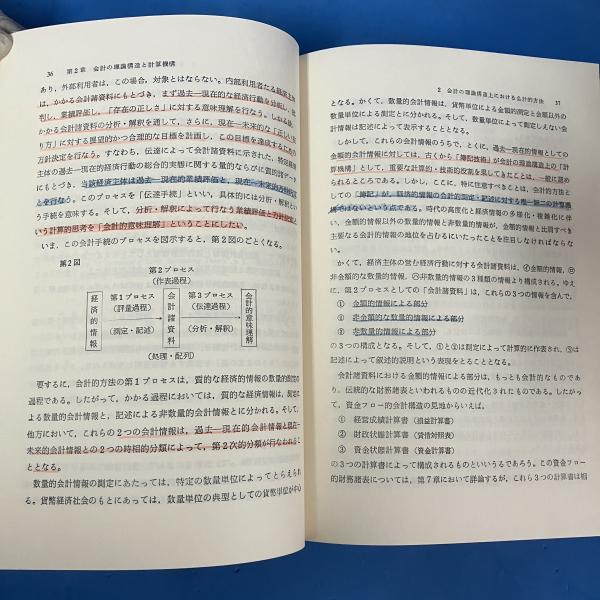 36　第2章　会計の理論構造と計算機構
あり、外部利用者は、この場合、対象とはならない。内部利用者たる経済主体
は、かかる会計諸資料にもとづき、まず過去―現在的な経済行動を分析し、批
判し、業績評価し、「存在の正しさ」に対する意味理解を行なう。しかし
かかる会計諸資料の分析・解釈を通して、さらに、現在―未来的な「正しい
り方」に対する展望的かつ合理的な目標を計画し、この目標を達成するための
方針決定を行なう。すなわち、伝達によって会計諸資料に示された、特定経済
主体の過去―現在的な経済行動の総合的実態に関する量的ならびに質的諸データ
にもとづき、当該経済主体は過去―現在的な業績評価と、現在―未来的方針決定
とを行なう。このプロセスを「伝達手続」といい、具体的には分析・解釈とい
う手続を意味する。そして、分析・解釈によって行なう業績評価と方針決定と
いう計算的思考を「会計的意味理解」ということにしたい。
いま、この会計手続のプロセスを図示すると、第2図のごとくなる。
第2図
第2プロセス
（作表過程）
経済的情報
第1プロセス
（評量過程）
（測定・記述）
会計諸資料
第3プロセス
（伝達過程）
（分析・解釈）
会計的意味理解
（処理・配列）
要するに、会計的方法の第1プロセスは、質的な経済的情報の数量的測定の
過程である。したがって、かかる過程においては、質的な経済情報は、測定に
よる数量的会計情報と、記述による非数量的会計情報とに分かれる。そして、
他方において、これらの2つの会計情報は、過去―現在的会計情報と現在―
未来的会計情報との2つの時相的分類によって、第2次的分類が行なわれるこ
ととなる。
数量的会計情報の測定にあたっては、特定の数量単位によってとらえられ
る。貨幣経済社会のもとにあっては、数量単位の典型としての貨幣単位が中心
2　会計の理論構造上における会計的方法　37
となる。かくて、数量的会計情報は、貨幣単位による金額的測定と金額以外の
数量単位による測定とに分かれる。そして、数量単位によって測定しえない会
計情報は記述によって表示することとなる。
しかして、これらの会計情報のうちで、とくに、過去―現在的情報としての
金額的会計情報に対しては、古くから「簿記技術」が会計の理論構造上の「計
算機構」として、重要な計算的・技術的役割を果してきたことは、一般に認め
られるところである。しかし、ここに、特に注意すべきことは、会計的方法と
しての「簿記」が、経済的情報の会計的測定・記述に対する唯一無二の計算機
構ではないという点である。時代の高度化と経済情報の多様化・複雑化に伴
い、金額的情報以外の数量的情報と非数量的情報が、金額的情報と比肩すべき
主要なる会計的情報の地位を占めるにいたったことを注目しなければならな
い。
かくて、経済主体の営む経済行動に対する会計諸資料は、㋑金額的情報、㋺
非金額的な数量的情報、㋩非数量的情報の3種類の情報より構成される。ゆえ
に、第2プロセスとしての「会計諸資料」は、これらの3つの情報を含んで、
①　金額的情報による部分
②　非金額的な数量的情報による部分
③　非数量的情報による部分
の3つの構成となる。そして、①と②は測定によって計算的に作表され、③は
記述によって叙述的説明という表現をとることとなる。
会計諸資料における金額的情報による部分は、もっとも会計的なものであ
り、伝統的な財務諸表といわれるものの近代化されたものである。したがっ
て、資金フロー的会計構造の見地からいえば、
①　経営成績計算書（損益計算書）
②　財政状態計算書（貸借対照表）
③　資金状態計算書（資金計算書）
の3つの計算書によって構成されるものといえるであろう。この資金フロー
的財務諸表については、第7章において詳論するが、これら3つの計算書は相